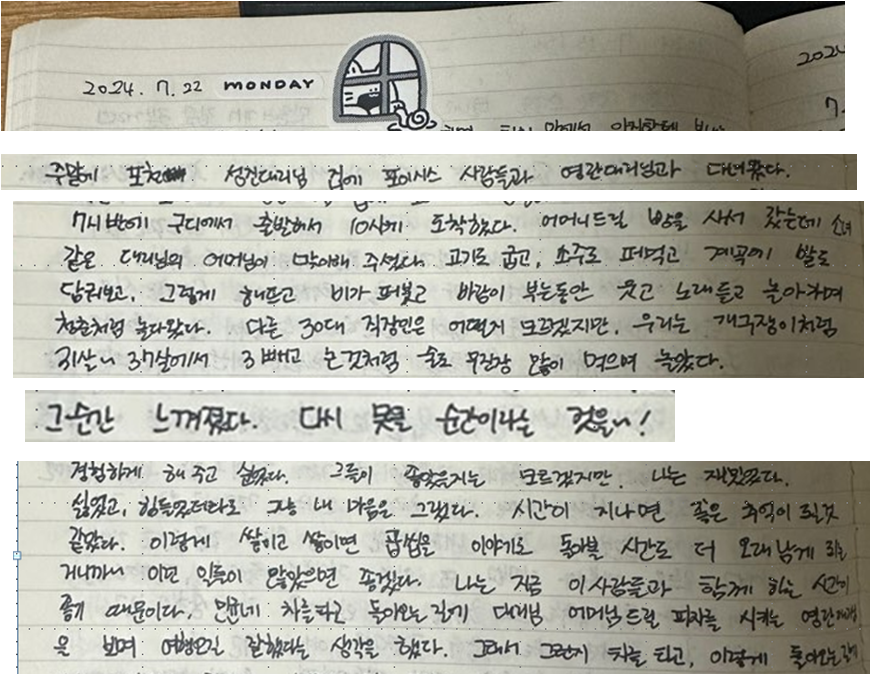 2024. 7. 22 MONDAY
2024
7.
주말에 포천 성진대리님 집에 포이시스 사람들과 영란대리님과 다녀왔다.
7시 반에 구디에서 출발해서 10시에 도착했다. 어머니드릴 빵을 사서 갔는데 소녀
같은 대리님의 어머님이 맞이해 주셨다. 고기도 굽고, 소주도 퍼먹고 계곡에 발도
담궈보고, 그렇게 해프고 비가 퍼붓고 바람이 부는동안 웃고 노래듣고 놀아하며
청춘처럼 놀다왔다. 다른 30대 직장인은 어떨지 모르겠지만, 우리는 개구쟁이처럼
31살~37살에서 3 빼고 논것처럼 술도 무진장 많이 먹으며 놀았다.
그순간 느껴졌다. 다시 못올 순간이라는 것을~!
경험하게 해 주고 싶었다. 그들이 좋았을지는 모르겠지만, 나는 재밌었다.
싫었고, 힘들었더라도 그냥 내 마음은 그랬다. 시간이 지나면 좋은 추억이 될것
같았다. 이렇게 쌓이고 쌓이면 곱씹을 이야기도 돌아볼 시간도 더 오래 남게 되는
거니까~ 이런 일들이 많았으면 좋겠다. 나는 지금 이사람들과 함께 하는 시간이
좋기 때문이다. 만균네 차를타고 돌아오는길에 대리님 어머님드릴 피자를 시키는 영란대리님
을 보며 여행오길 잘했다는 생각을 했다. 그래서 그런지 차를 타고, 이렇게 돌아오는길에